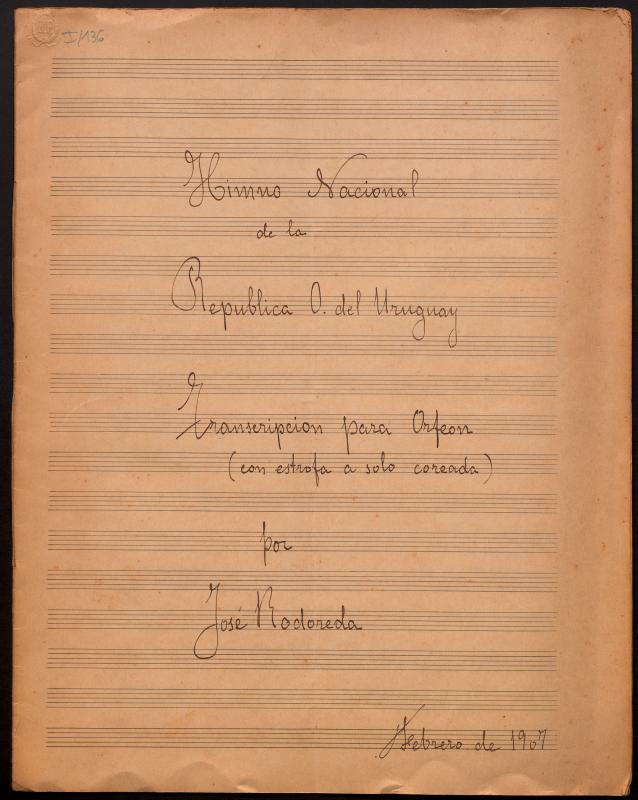 I/136
Himno Nacional
de la
Republica O. del Uruguay
Transcripcion para Orfeon
(con estrofa a solo coreada)
por
José Rodoreda
Febrero de 1907